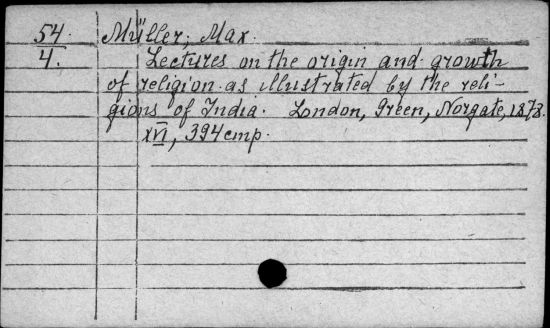 54. Müller, Max.
4. Lectures on the origin and growth
of religion as illustrated by the reli-
gions of India. London, Green, Norgate, 1878.
XVI, 394 стр.